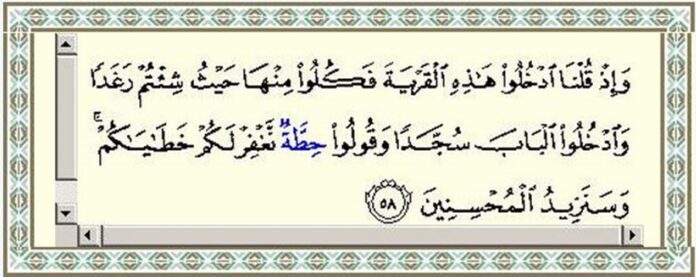 وَإِذْ قُلْنَا ٱدْخُلُوا۟ هَٰذِهِ ٱلْقَرْيَةَ فَكُلُوا۟ مِنْهَا حَيْثُ شِئْتُمْ رَغَدًا
وَٱدْخُلُوا۟ ٱلْبَابَ سُجَّدًا وَقُولُوا۟ حِطَّةٌ نَّغْفِرْ لَكُمْ خَطَٰيَٰكُمْ ۚ
وَسَنَزِيدُ ٱلْمُحْسِنِينَ ٥٨